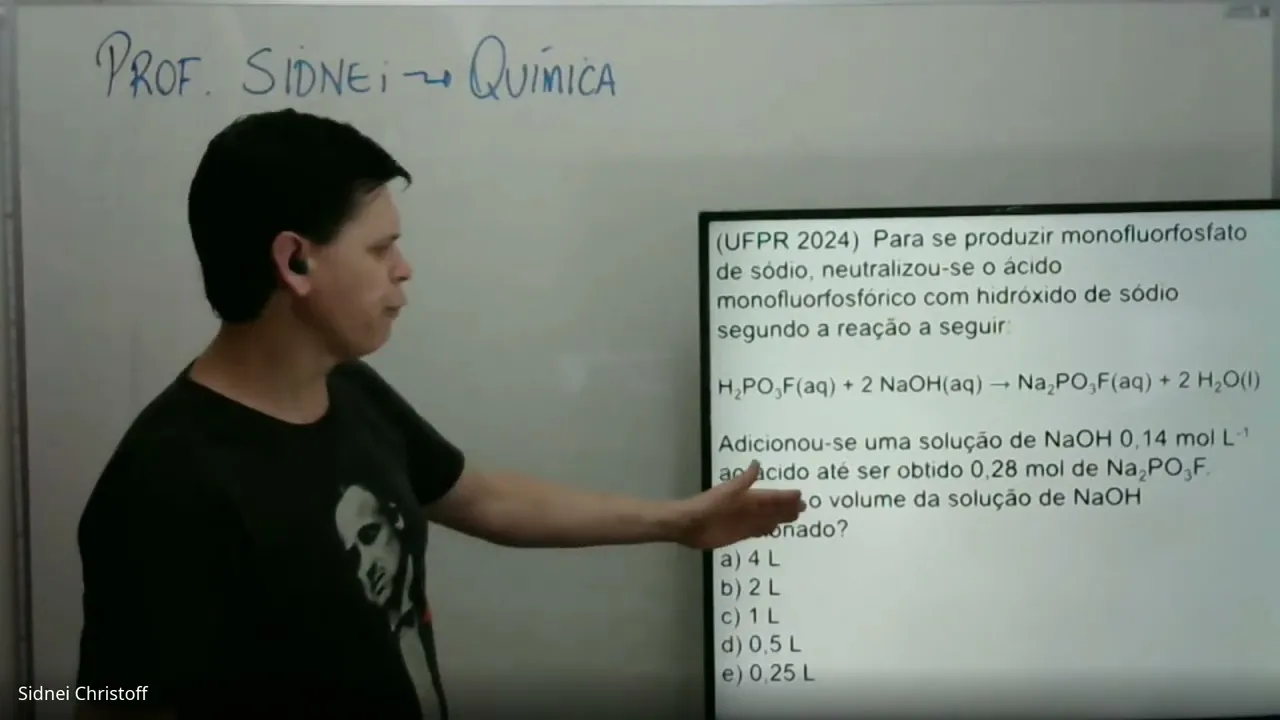 PROF. SIDNEi → QUÍMICA
(UFPR 2024) Para se produzir monofluorfosfato
de sódio, neutralizou-se o ácido
monofluorfosfórico com hidróxido de sódio
segundo a reação a seguir:
H₂PO₃F(aq) + 2 NaOH(aq) → Na₂PO₃F(aq) + 2 H₂O(l)
Adicionou-se uma solução de NaOH 0,14 mol L⁻¹
ao ácido até ser obtido 0,28 mol de Na₂PO₃F.
o volume da solução de NaOH
onado?
a) 4 L
b) 2 L
c) 1 L
d) 0,5 L
e) 0,25 L
Sidnei Christoff